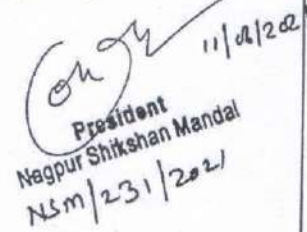 11/08/202
President
Nagpur Shikshan Mandal
NSM/231/2021